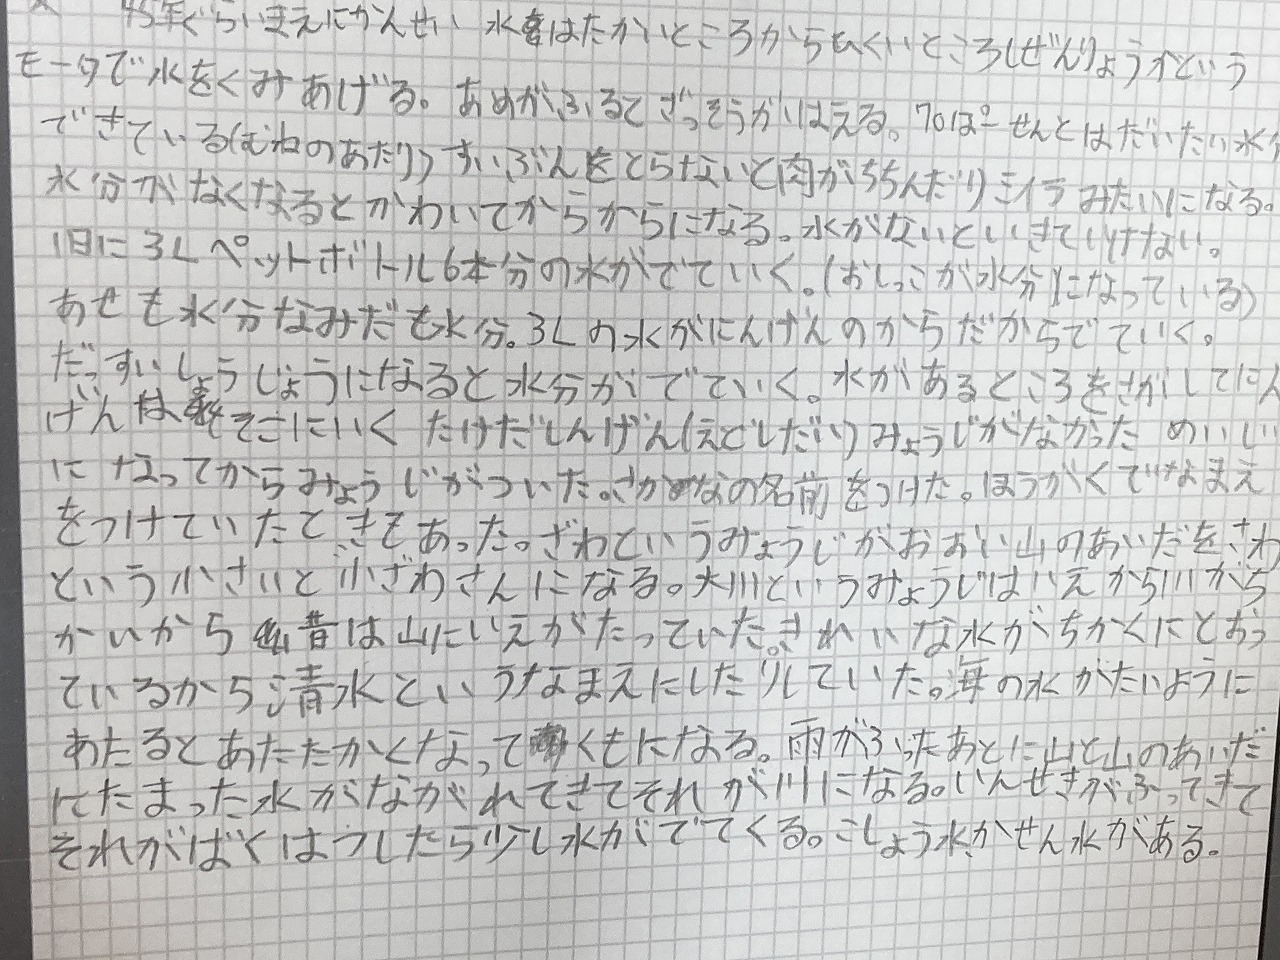 45年ぐらいまえにかんせい 水はたかいところからひくいところ(ぜんりょうかという
モータで水をくみあげる。あめがふるとざっそうがはえる。70ぱーせんとはだいたい水分
できている(むねのあたり)すいぶんをとらないと肉がちぢんだりミイラみたいになる。
水分がなくなるとかわいてからからになる。水がないといきていけない。
1日に3Lペットボトル6本分の水がでていく。(おしっこが水分になっている)
あせも水分なみだも水分。3Lの水がにんげんのからだからでていく。
だっすいしょうじょうになると水分がでていく。水があるところをさがしてにん
げんはそこにいく たけだしんげん(えどじだい)みょうじがなかった めいじ
になってからみょうじがついた。さかなの名前をつけた。ほうがくでなまえ
をつけていたときもあった。ざわというみょうじがおおい山のあいだをさわ
という小さいと小ざわさんになる。大川というみょうじはいえから川がち
かいから 昔は山にいえがたっていた。きれいな水がちかくにとおっ
ているから清水というなまえにしたりしていた。海の水がたいように
あたるとあたたかくなってくもになる。雨がふったあとに山と山のあいだ
にたまった水がながれてきてそれが川になる。いんせきがふってきて
それがばくはつしたら少し水がでてくる。こしょう水かせん水がある。